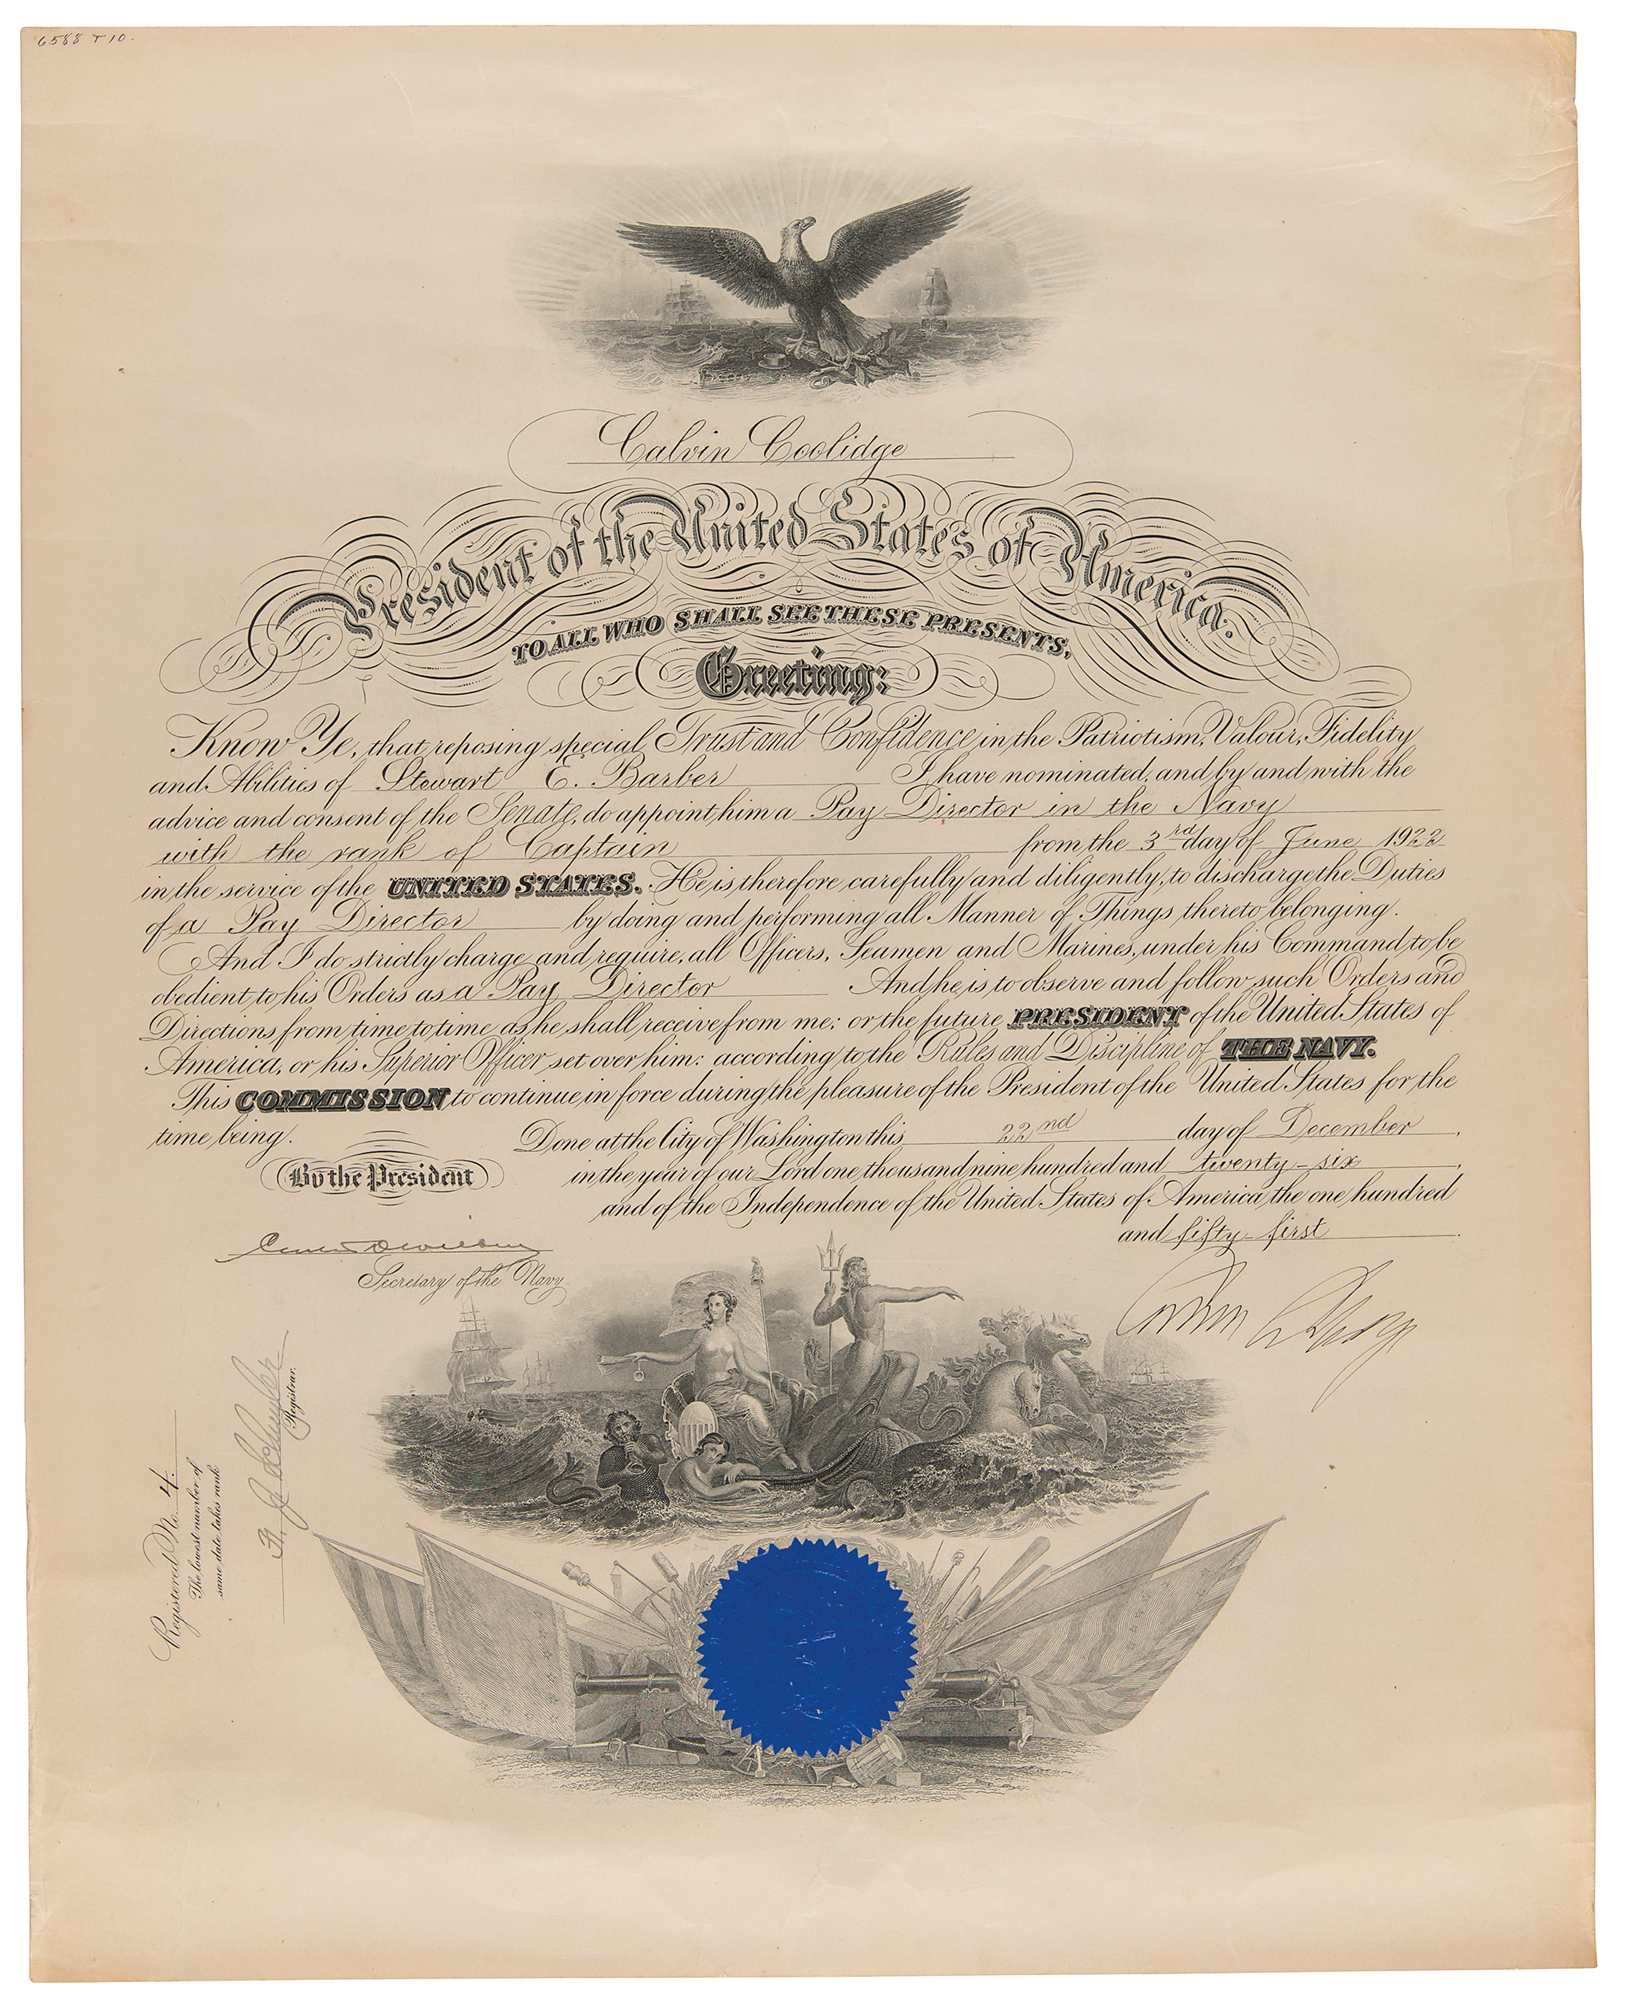 6588 T 10.
Calvin Coolidge
President of the United States of America.
TO ALL WHO SHALL SEE THESE PRESENTS,
Greeting:
Know Ye, that reposing special Trust and Confidence in the Patriotism, Valour, Fidelity
and Abilities of Stewart E. Barber I have nominated, and by and with the
advice and consent of the Senate, do appoint him a Pay Director in the Navy
with the rank of Captain from the 3rd day of June 1922
in the service of the UNITED STATES. He is therefore carefully and diligently to discharge the Duties
of a Pay Director by doing and performing all Manner of Things thereto belonging.
And I do strictly charge and require all Officers, Seamen and Marines, under his Command to be
obedient to his Orders as a Pay Director And he is to observe and follow such Orders and
Directions from time to time as he shall receive from me; or the future PRESIDENT of the United States of
America, or his Superior Officer set over him: according to the Rules and Discipline of THE NAVY.
This COMMISSION to continue in force during the pleasure of the President of the United States for the
time being.
Done at the City of Washington this 22nd day of December
in the year of our Lord one thousand nine hundred and twenty-six
and of the Independence of the United States of America the one hundred
and fifty-first
By the President
Curtis D Wilbur
Secretary of the Navy.
Calvin Coolidge
Registered No. 4.
The lowest number of
same date takes rank
Registrar.